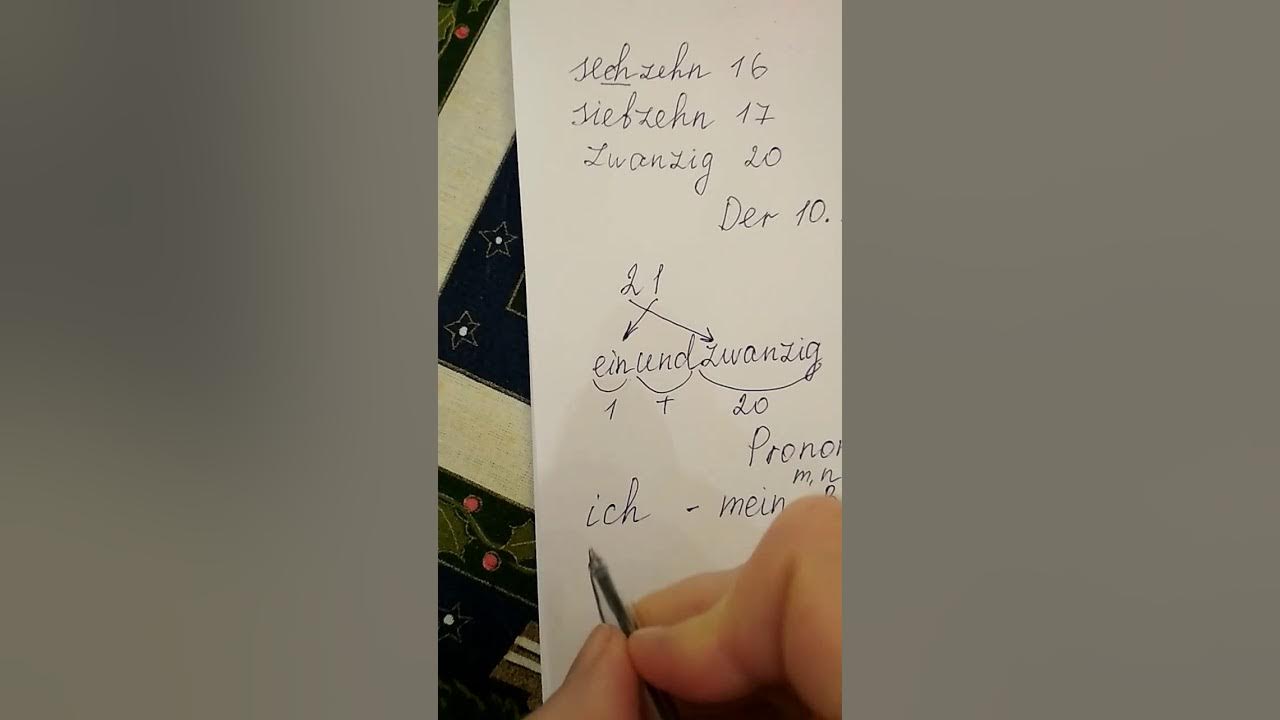 sechzehn 16
siebzehn 17
zwanzig 20
Der 10.
21
einundzwanzig
1 + 20
m, n
ich - mein